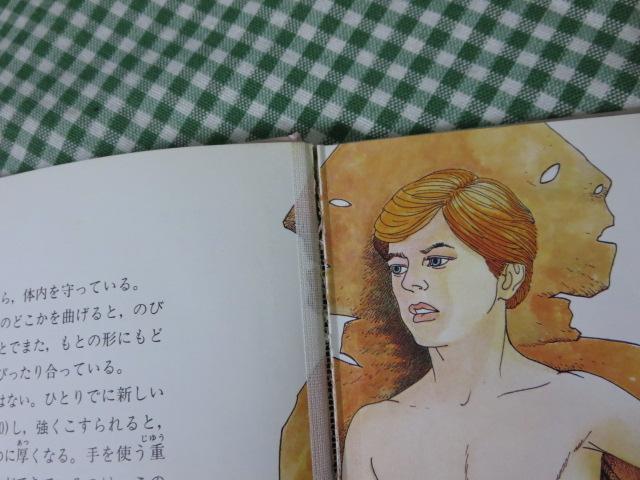 ら，体内を守っている。
のどこかを曲げると，のび
とでまた，もとの形にもど
ぴったり合っている。
はない。ひとりでに新しい
し，強くこすられると，
に厚くなる。手を使う重